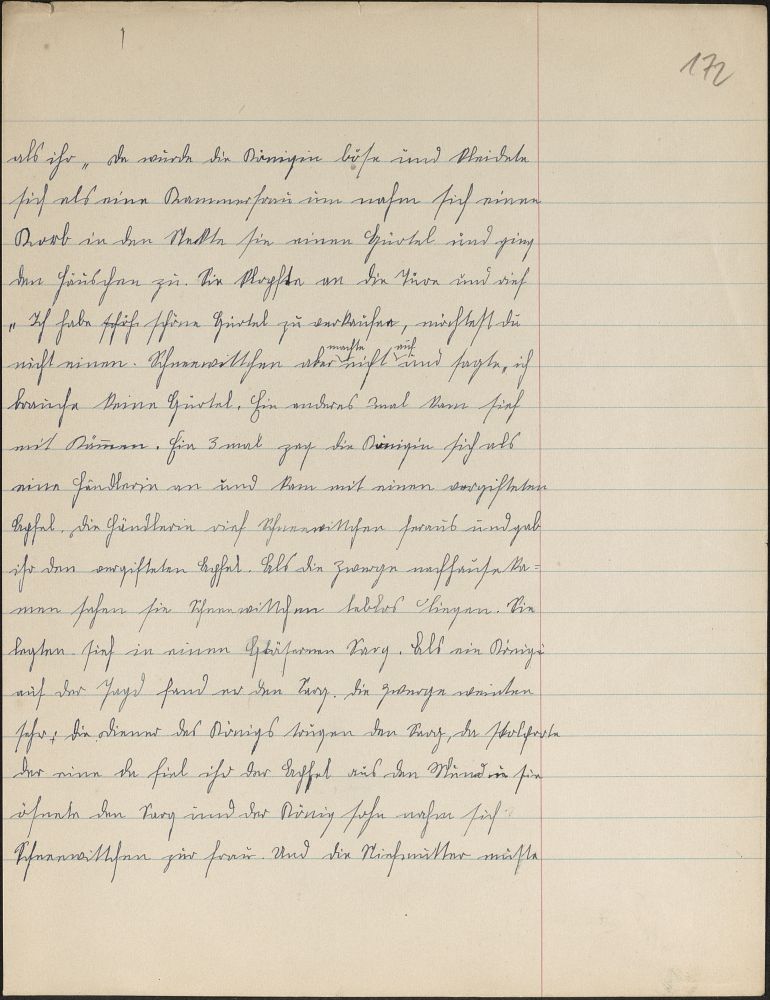 172
als ihr „ Da wurde die Königin böse und kleidete
sich als eine Kammerfrau um nahm sich einen
Korb in den steckte sie einen Gürtel und ging
den Häuschen zu. Sie klopfte an die Türe und rief
„ Ich habe schöne Gürtel zu verkaufen, möchtest du
nicht einen. Schneewittchen aber machte nicht auf und sagte, ich
brauche keine Gürtel. Ein anderes mal kam sie
mit Kämmen. Ein 3 mal zog die Königin sich als
eine Händlerin an und kam mit einen vergifteten
Apfel. Die Händlerin rief Schneewittchen heraus und gab
ihr den vergifteten Apfel. Als die Zwerge nachhause ka=
men sahen sie Schneewittchen leblos liegen. Sie
legten sie in einen Gläsernen Sarg. Als ein König
auf der Jagd fand er den Sarg. Die Zwerge weinten
sehr, die Diener des Königs trugen den Sarg, da stolperte
der eine da fiel ihr der Apfel aus den Mund sie
öfnete den Sarg und der König sohn nahm sich
Schneewittchen zur Frau. Und die Stiefmutter müßte